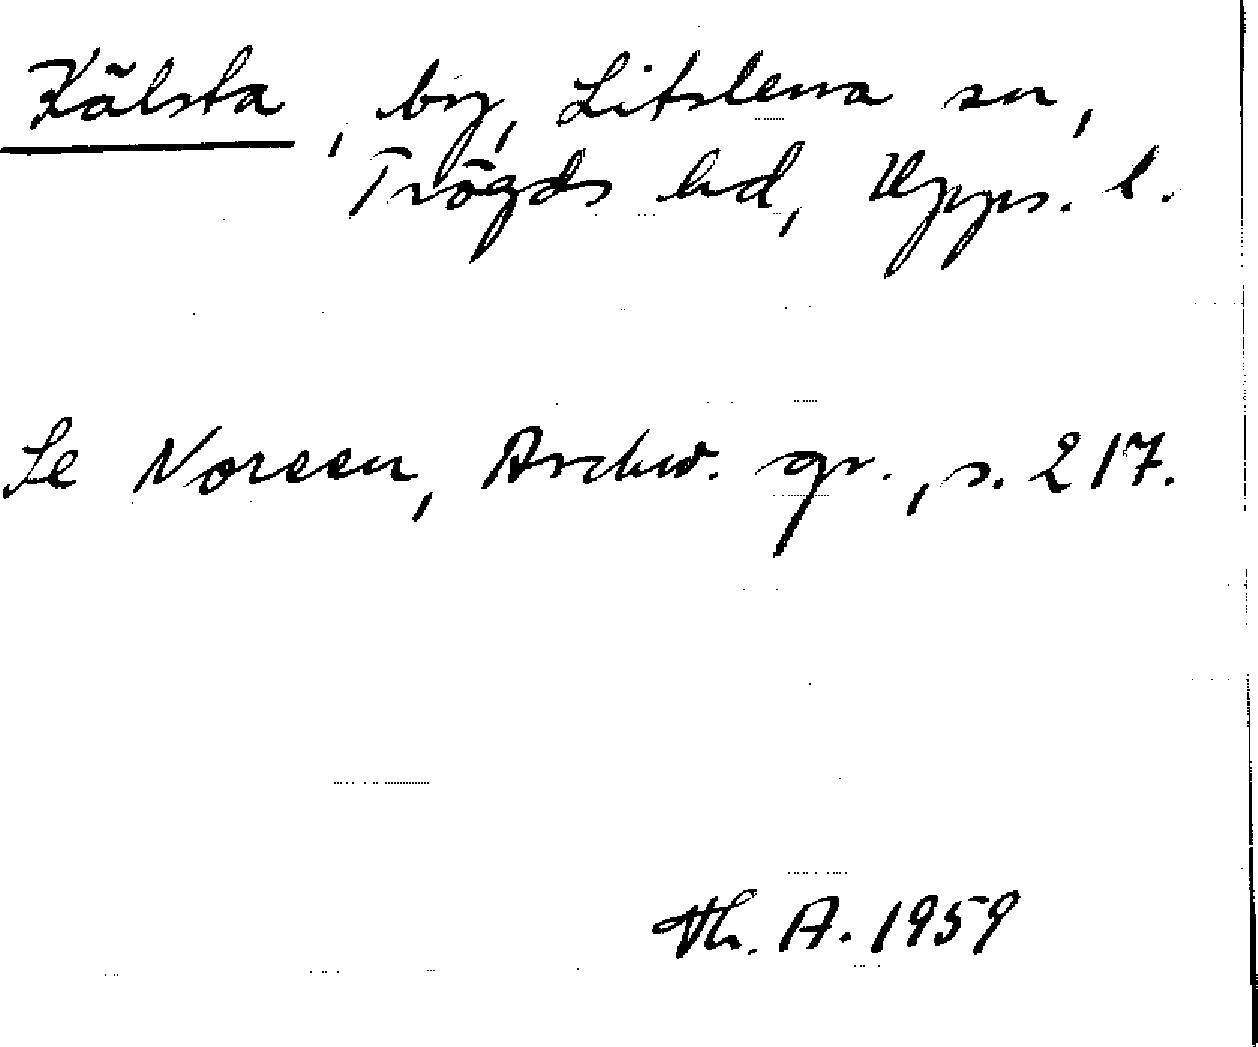 Kälsta, by, Litslena sn,
Trögds hd, Upps. l.
Se Noreen, Archiv. gr., s. 217.
Th. A. 1959